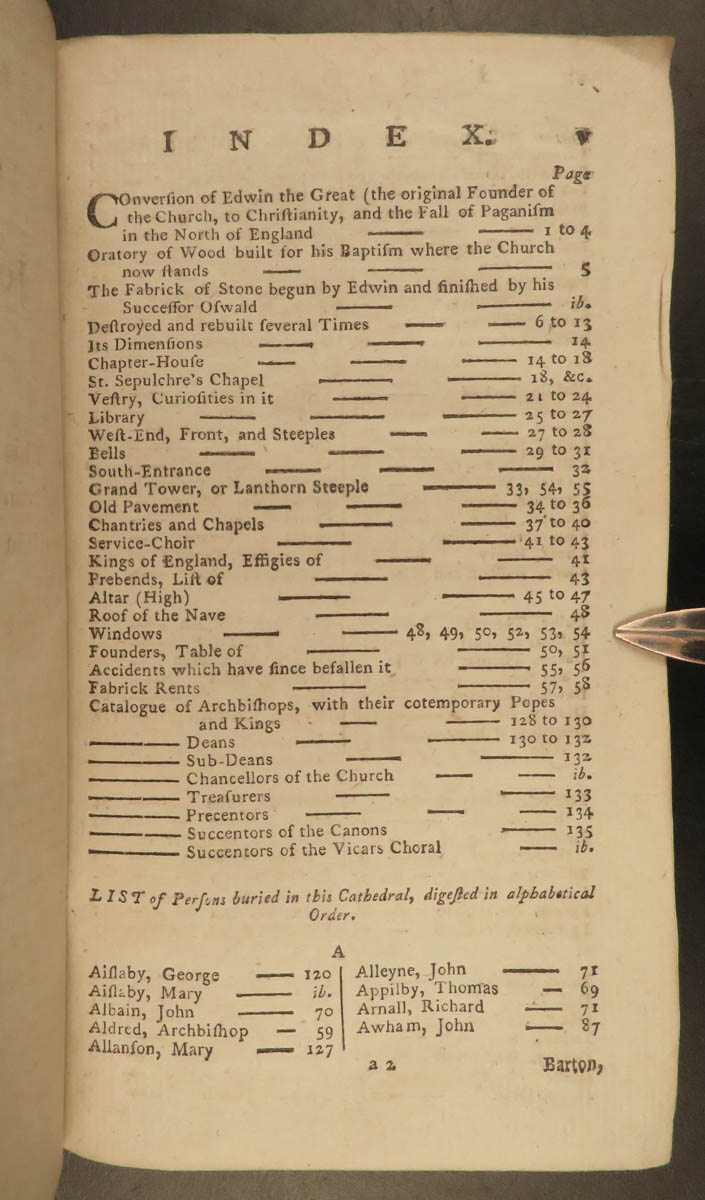 INDEX. v
Page
COnverſion of Edwin the Great (the original Founder of
the Church, to Chriſtianity, and the Fall of Paganiſm
in the North of England —— —— 1 to 4
Oratory of Wood built for his Baptiſm where the Church
now ſtands —— —— —— 5
The Fabrick of Stone begun by Edwin and finiſhed by his
Succeſſor Oſwald —— —— ib.
Deſtroyed and rebuilt ſeveral Times —— —— 6 to 13
Its Dimenſions —— —— —— 14
Chapter-Houſe —— —— —— 14 to 18
St. Sepulchre's Chapel —— —— 18, &c.
Veſtry, Curioſities in it —— —— 21 to 24
Library —— —— —— 25 to 27
Weſt-End, Front, and Steeples —— —— 27 to 28
Bells —— —— —— 29 to 31
South-Entrance —— —— —— 32
Grand Tower, or Lanthorn Steeple —— 33, 54, 55
Old Pavement —— —— —— 34 to 36
Chantries and Chapels —— —— 37 to 40
Service-Choir —— —— 41 to 43
Kings of England, Effigies of —— —— 41
Prebends, Liſt of —— —— 43
Altar (High) —— —— 45 to 47
Roof of the Nave —— —— 48
Windows —— —— 48, 49, 50, 52, 53, 54
Founders, Table of —— —— 50, 51
Accidents which have ſince befallen it —— 55, 56
Fabrick Rents —— —— 57, 58
Catalogue of Archbiſhops, with their cotemporary Popes
and Kings —— —— 128 to 130
—— Deans —— —— 130 to 132
—— Sub-Deans —— —— 132
—— Chancellors of the Church —— —— ib.
—— Treaſurers —— —— 133
—— Precentors —— —— —— 134
—— Succentors of the Canons —— 135
—— Succentors of the Vicars Choral —— ib.
LIST of Perſons buried in this Cathedral, digeſted in alphabetical
Order.
A
Aiſlaby, George —— 120
Aiſlaby, Mary —— ib.
Albain, John —— 70
Aldred, Archbiſhop — 59
Allanſon, Mary —— 127
Alleyne, John —— 71
Appilby, Thomas — 69
Arnall, Richard —— 71
Awham, John —— 87
a 2 Barton,